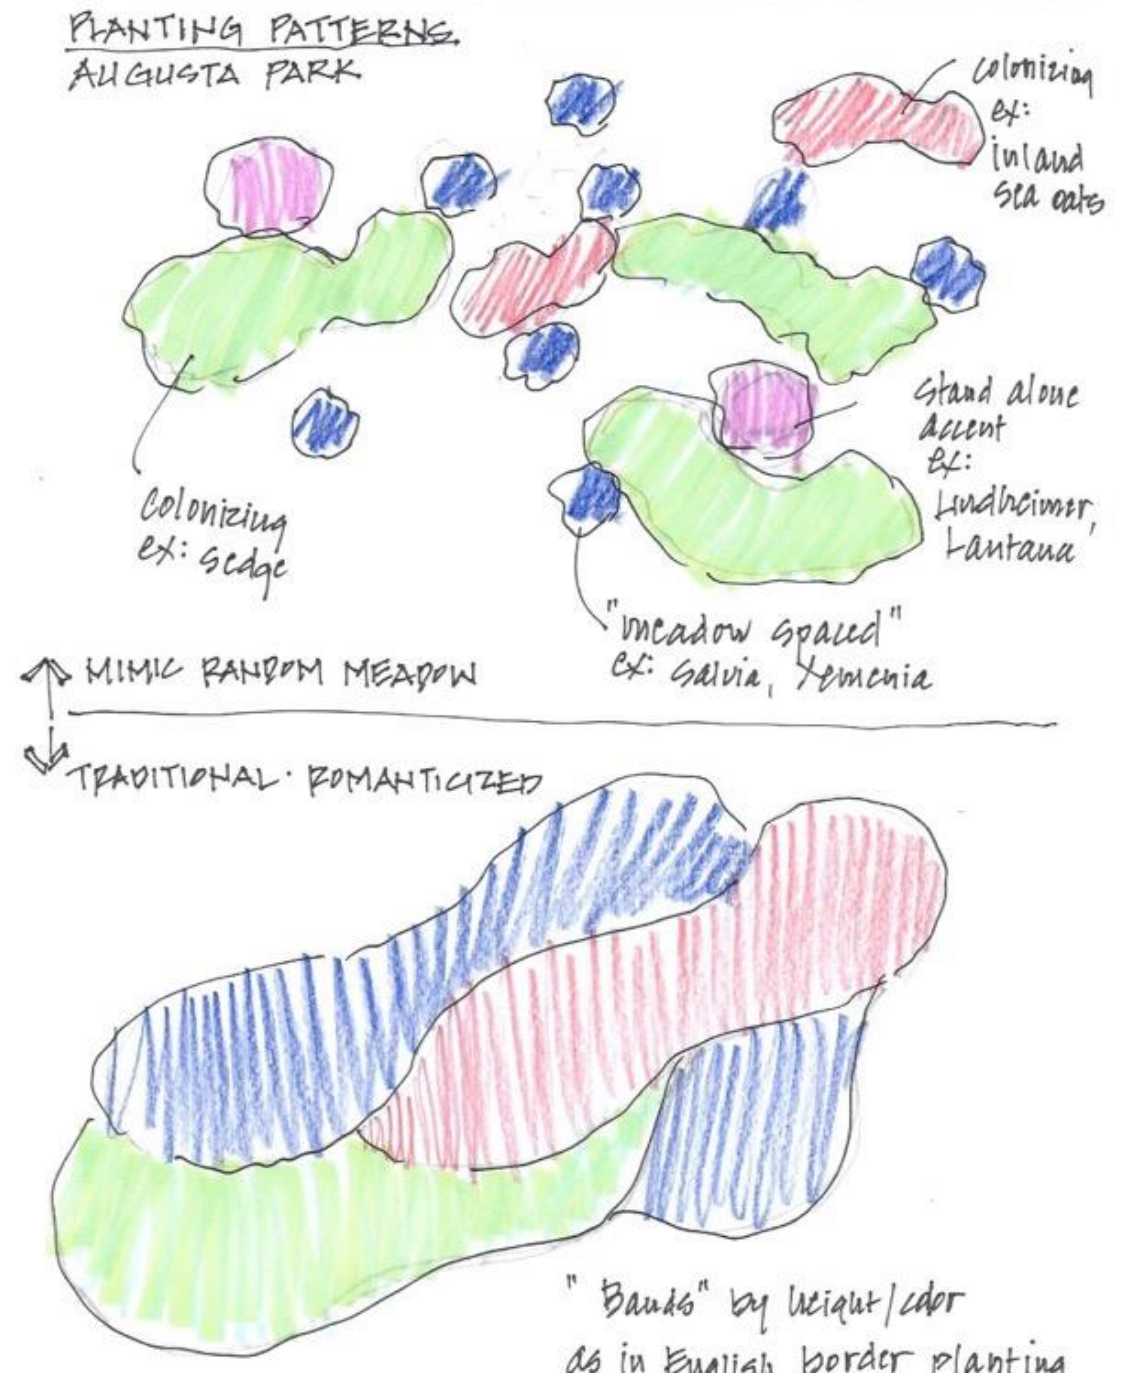 PLANTING PATTERNS
AUGUSTA PARK
colonizing
ex:
inland
sea oats
stand alone
accent
ex:
Lindheimer,
Lantana
colonizing
ex: sedge
"meadow spaced"
ex: Salvia, Xemenia
MIMIC RANDOM MEADOW
TRADITIONAL · ROMANTICIZED
"Bands" by height/color
as in English border planting